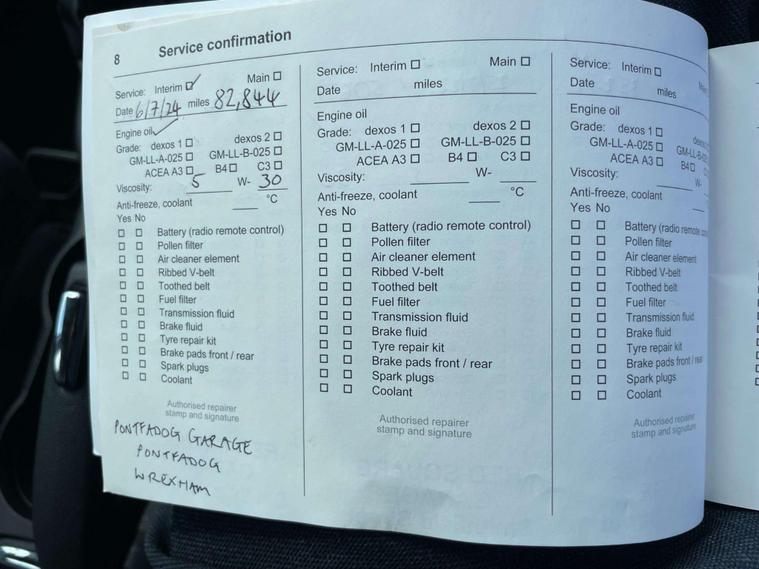 8 Service confirmation
Service: Interim ☑ Main ☐
Date 6/7/24 miles 82,844
Engine oil ✓
Grade: dexos 1 ☐ dexos 2 ☐
GM-LL-A-025 ☐ GM-LL-B-025 ☐
ACEA A3 ☐ B4 ☐ C3 ☐
Viscosity: 5 W- 30
Anti-freeze, coolant ____ °C
Yes No
☐ ☐ Battery (radio remote control)
☐ ☐ Pollen filter
☐ ☐ Air cleaner element
☐ ☐ Ribbed V-belt
☐ ☐ Toothed belt
☐ ☐ Fuel filter
☐ ☐ Transmission fluid
☐ ☐ Brake fluid
☐ ☐ Tyre repair kit
☐ ☐ Brake pads front / rear
☐ ☐ Spark plugs
☐ ☐ Coolant
Authorised repairer
stamp and signature
PONTFADOG GARAGE
PONTFADOG
WREXHAM
Service: Interim ☐ Main ☐
Date miles
Engine oil
Grade: dexos 1 ☐ dexos 2 ☐
GM-LL-A-025 ☐ GM-LL-B-025 ☐
ACEA A3 ☐ B4 ☐ C3 ☐
Viscosity: ____ W- ____
Anti-freeze, coolant ____ °C
Yes No
☐ ☐ Battery (radio remote control)
☐ ☐ Pollen filter
☐ ☐ Air cleaner element
☐ ☐ Ribbed V-belt
☐ ☐ Toothed belt
☐ ☐ Fuel filter
☐ ☐ Transmission fluid
☐ ☐ Brake fluid
☐ ☐ Tyre repair kit
☐ ☐ Brake pads front / rear
☐ ☐ Spark plugs
☐ ☐ Coolant
Authorised repairer
stamp and signature
Service: Interim ☐
Date miles
Engine oil
Grade: dexos 1 ☐
GM-LL-A-025 ☐
ACEA A3 ☐ B4 ☐
Viscosity: ____ W-
Anti-freeze, coolant
Yes No
☐ ☐ Battery (radio remote
☐ ☐ Pollen filter
☐ ☐ Air cleaner element
☐ ☐ Ribbed V-belt
☐ ☐ Toothed belt
☐ ☐ Fuel filter
☐ ☐ Transmission fluid
☐ ☐ Brake fluid
☐ ☐ Tyre repair kit
☐ ☐ Brake pads front / rear
☐ ☐ Spark plugs
☐ ☐ Coolant
Authorised repairer
stamp and signature